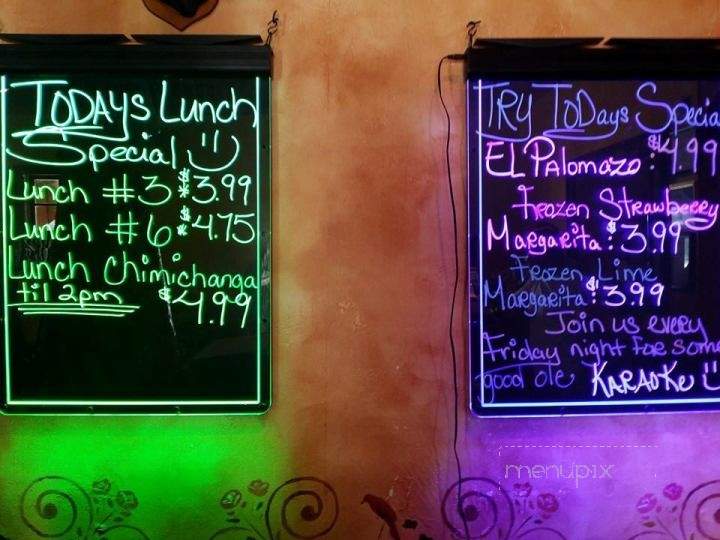 TODAYS Lunch
Special
Lunch #3 $3.99
Lunch #6 $4.75
Lunch Chimichanga
til 2pm $4.99
TRY TODays Specia
EL Palomazo : $4.99
Frozen Strawberry
Margarita : $3.99
Frozen Lime
Margarita : $3.99
Join us every
Friday night for some
good ole KARAOKe
menupix